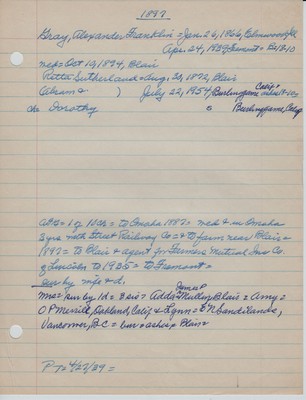 1887
Gray, Alexander Franklin = Jan. 26, 1866, Elmwood, Ill
Apr. 24, 1939, Fremont =
m = Oct 10, 1894, Blair
Retta Sutherland = Aug. 30, 1872, Blair
Abram & ) July 22, 1954, Burlingame Calif =
ch = Dorothy Burlingame, Calif
to Omaha 1887 = med & in Omaha
3 yrs with Street Railway Co = & to farm near Blair =
1897 = to Blair & agent for Farmers Mutual Ins Co.
of Lincoln to 1935 = to Fremont =
sur by wife & d.
Mrs = sur by 1d = 3 sis = Adda = James P Mullen, Blair = Amy =
O P Merrill, Oakland, Calif = Lynn = E N Sandilands,
Vancouver, B C = bur = ashes = Blair =
P = 4/27/39 =